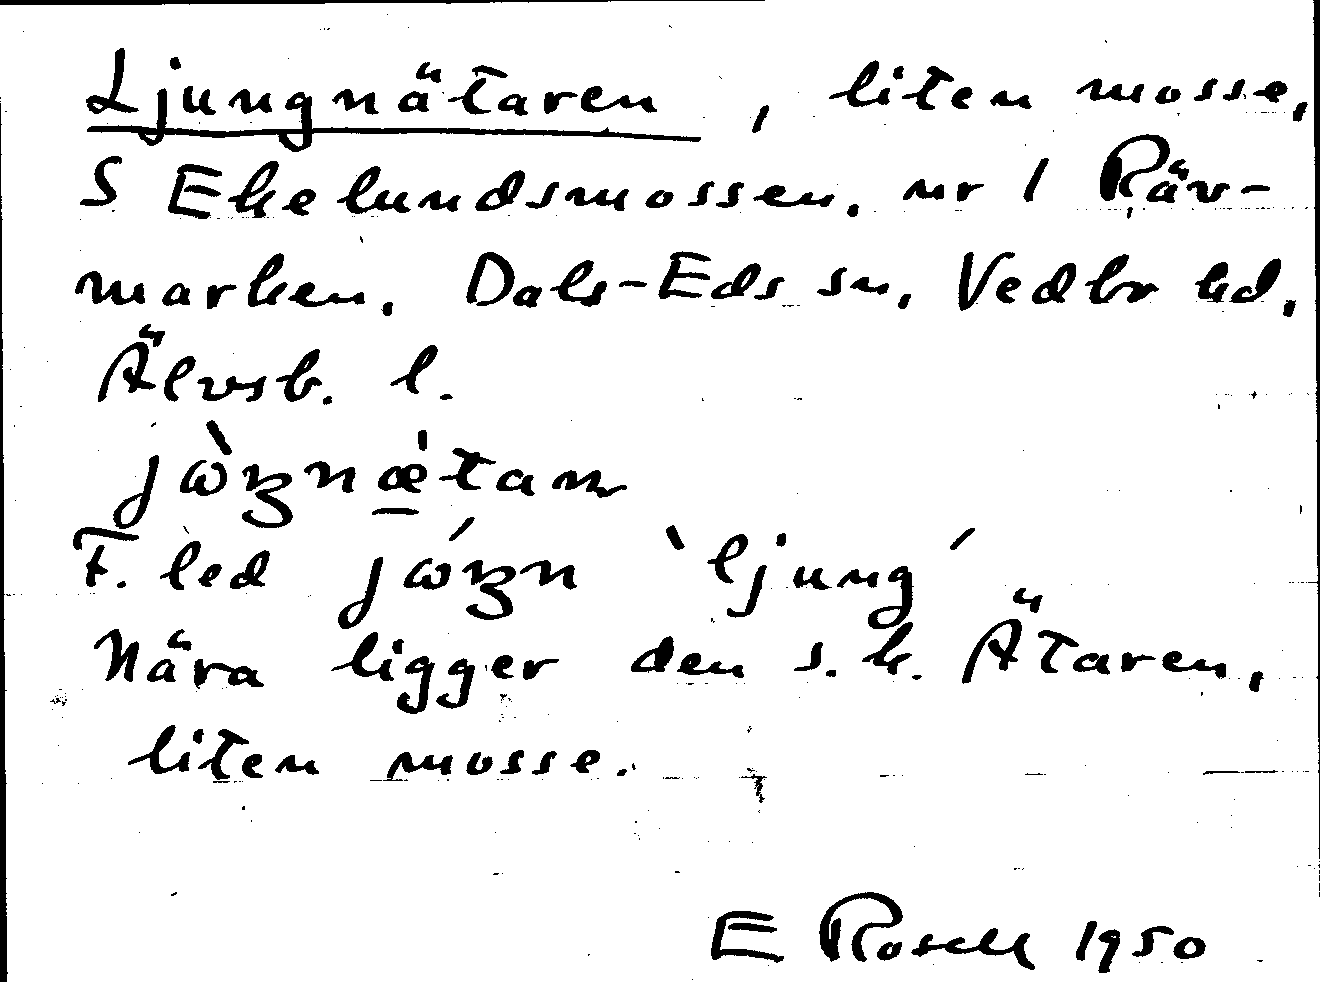 Ljungnätaren, liten mosse,
S Ekelundsmossen, nr 1 Räv-
marken, Dals-Eds sn, Vedbo hd,
Älvsb. l.
F. led `ljung´
Nära ligger den s.k. Ätaren,
liten mosse.
E Rosell 1950